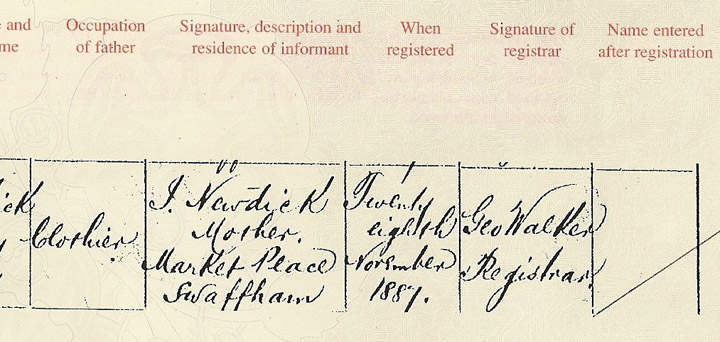 e and Occupation Signature, description and When Signature of Name entered
me of father residence of informant registered registrar after registration
ick Clothier I. Newdick Twenty Geo Walker
Mother. eighth Registrar.
Market Place November
Swaffham 1887.